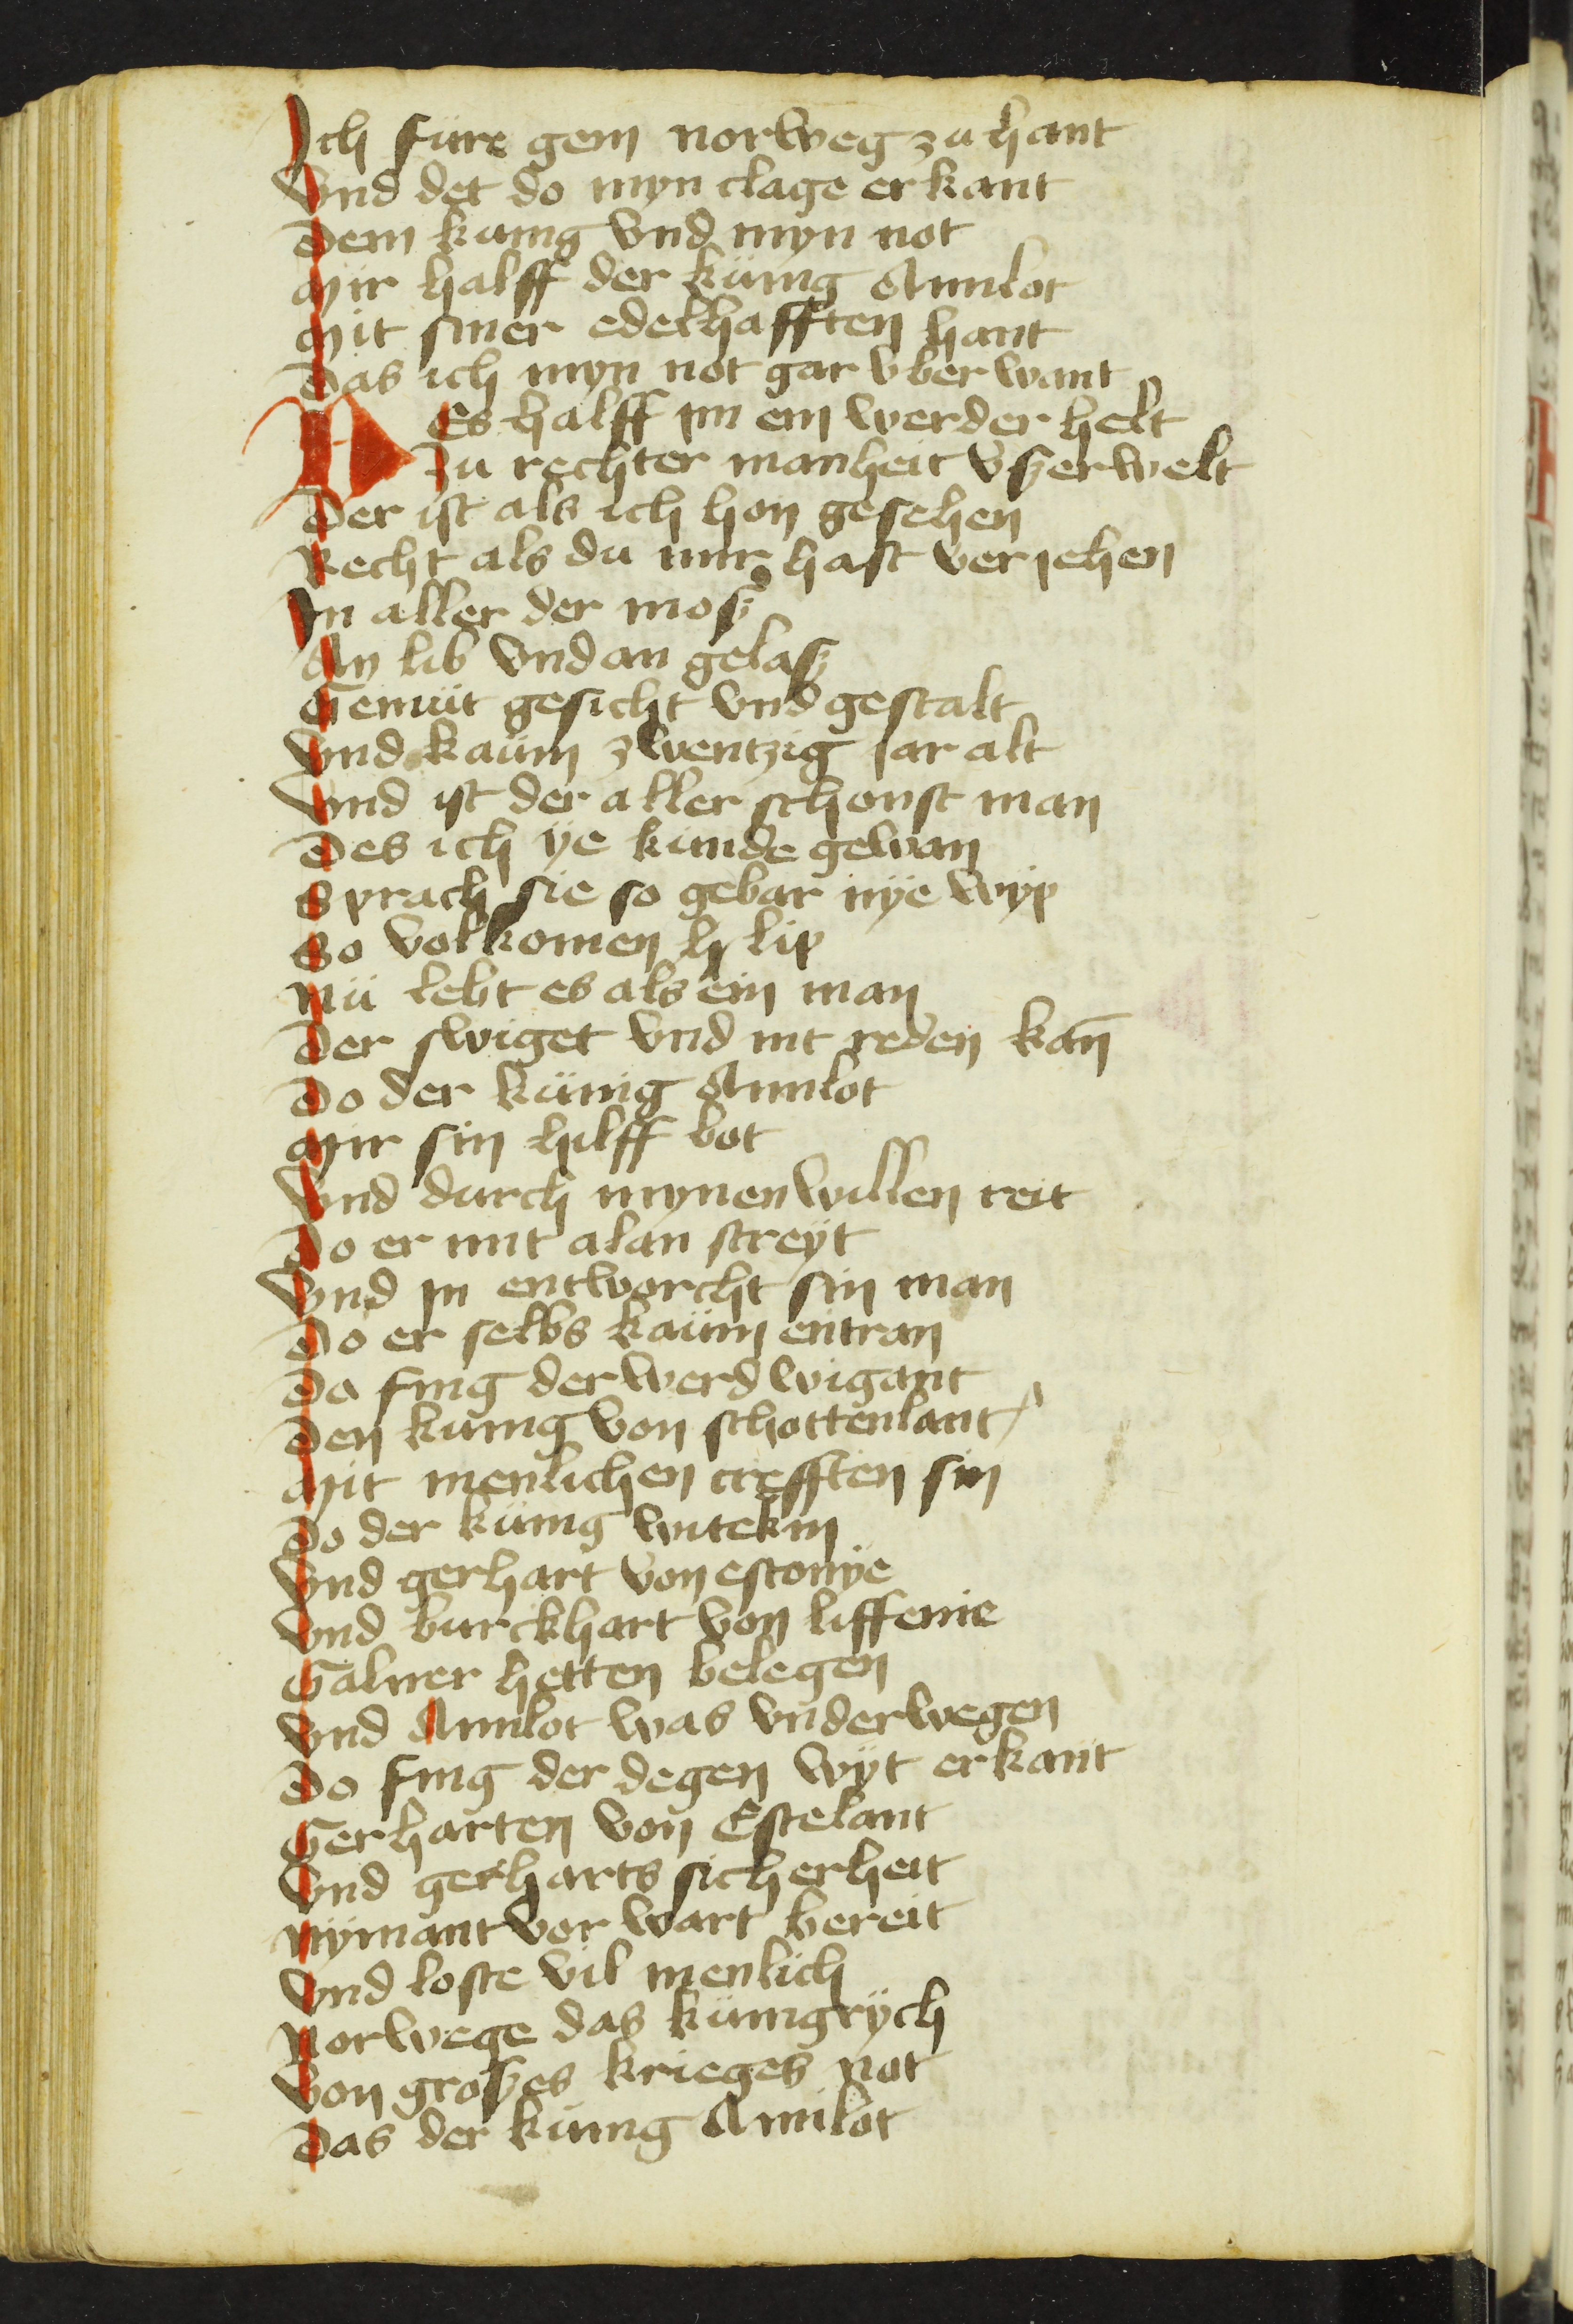 Ich füre gem norweg zu hant
Vnd det do myn clage erkant
Dem kunig vnd myn not
Mir halff der künig Amilot
Mit siner edelhafften hant
Das ich myn not gar vberwant
Des halff im ein werder helt
Zu rechter manheit vßerwelt
Der ist als ich hon gesehen
Recht als du mir hast veriehen
In aller der moß
An lib vnd an gelaß
Gemüt gesicht vnd gestalt
Vnd kaüm zwentzig iar alt
Vnd ist der aller schonst man
Des ich ÿe künde gewan
Sprach sie so gebar nÿe wÿp
So volkomen lip
Nü lebt es als ein man
Der swiget vnd nit reden kan̄
Do der künig Amilot
Mir sin hilff bot
Vnd durch mynen willen reit
Do er mit alan streÿt
Vnd in entworcht sin man
Do er selbs kaüm entran
Do fing der werd wigant
Den kunig von schottenlant
Mit menlichen crefften sin
Do der künig witekin
Vnd gerhart von estonÿe
Vnd burckhart von liffenie
Galuer hetten belegen
Vnd Amilot was vnderwegen
Do fing der degen wÿt erkant
Gerharten von Estelant
Vnd gerharts sicherheit
Nÿmant vor wart bereit
Vnd loste vil menlich
Norwege das künigrÿch
Von großes krieges not
Das der künig Amilot